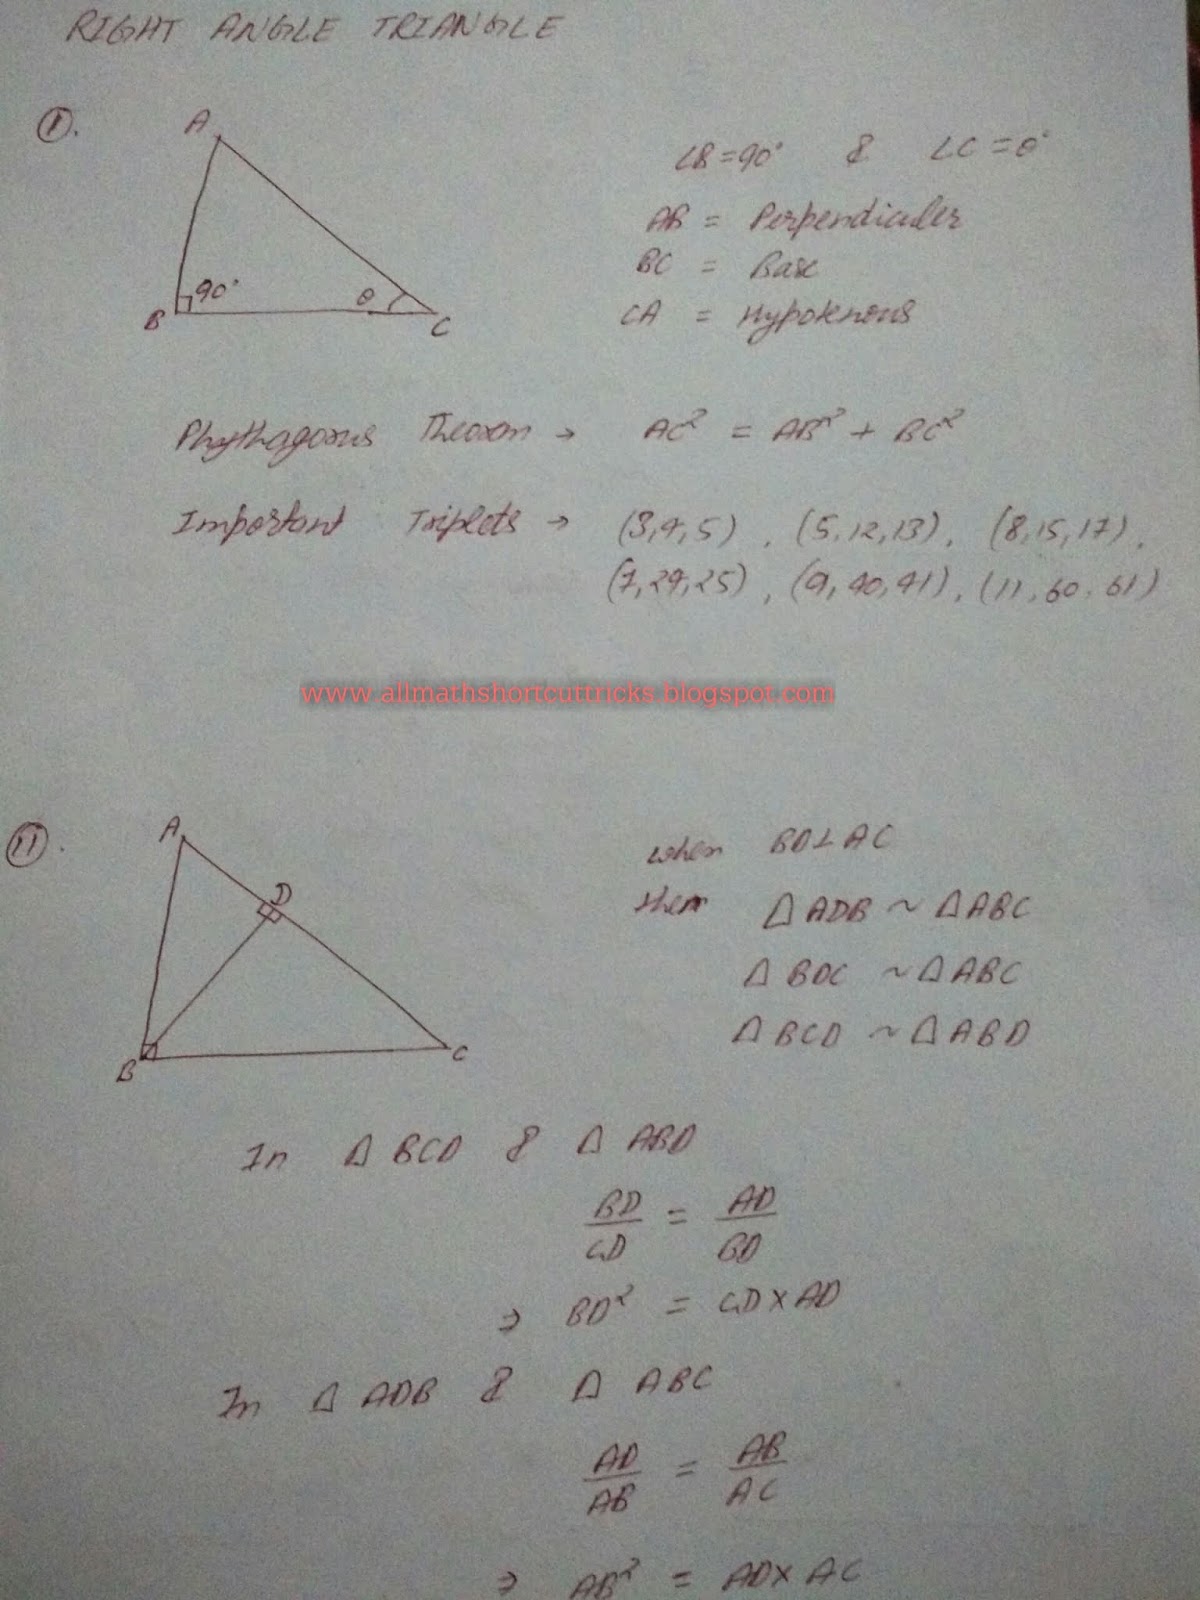 RIGHT ANGLE TRIANGLE
①.
A
∠B=90° & ∠C=θ°
AB = Perpendiculer
BC = Base
90° θ
B C
CA = Hypotenous
Phythagorus Theorem → AC² = AB² + BC²
Important Triplets → (3,4,5), (5,12,13), (8,15,17),
(7,24,25), (9,40,41), (11,60,61)
www.allmathshortcuttricks.blogspot.com
⑪.
A
when BD⊥AC
D
then ΔADB ~ ΔABC
ΔBDC ~ ΔABC
ΔBCD ~ ΔABD
B C
In Δ BCD & Δ ABD
BD/CD = AD/BD
⇒ BD² = CD×AD
In Δ ADB & Δ ABC
AD/AB = AB/AC
⇒ AB² = AD×AC